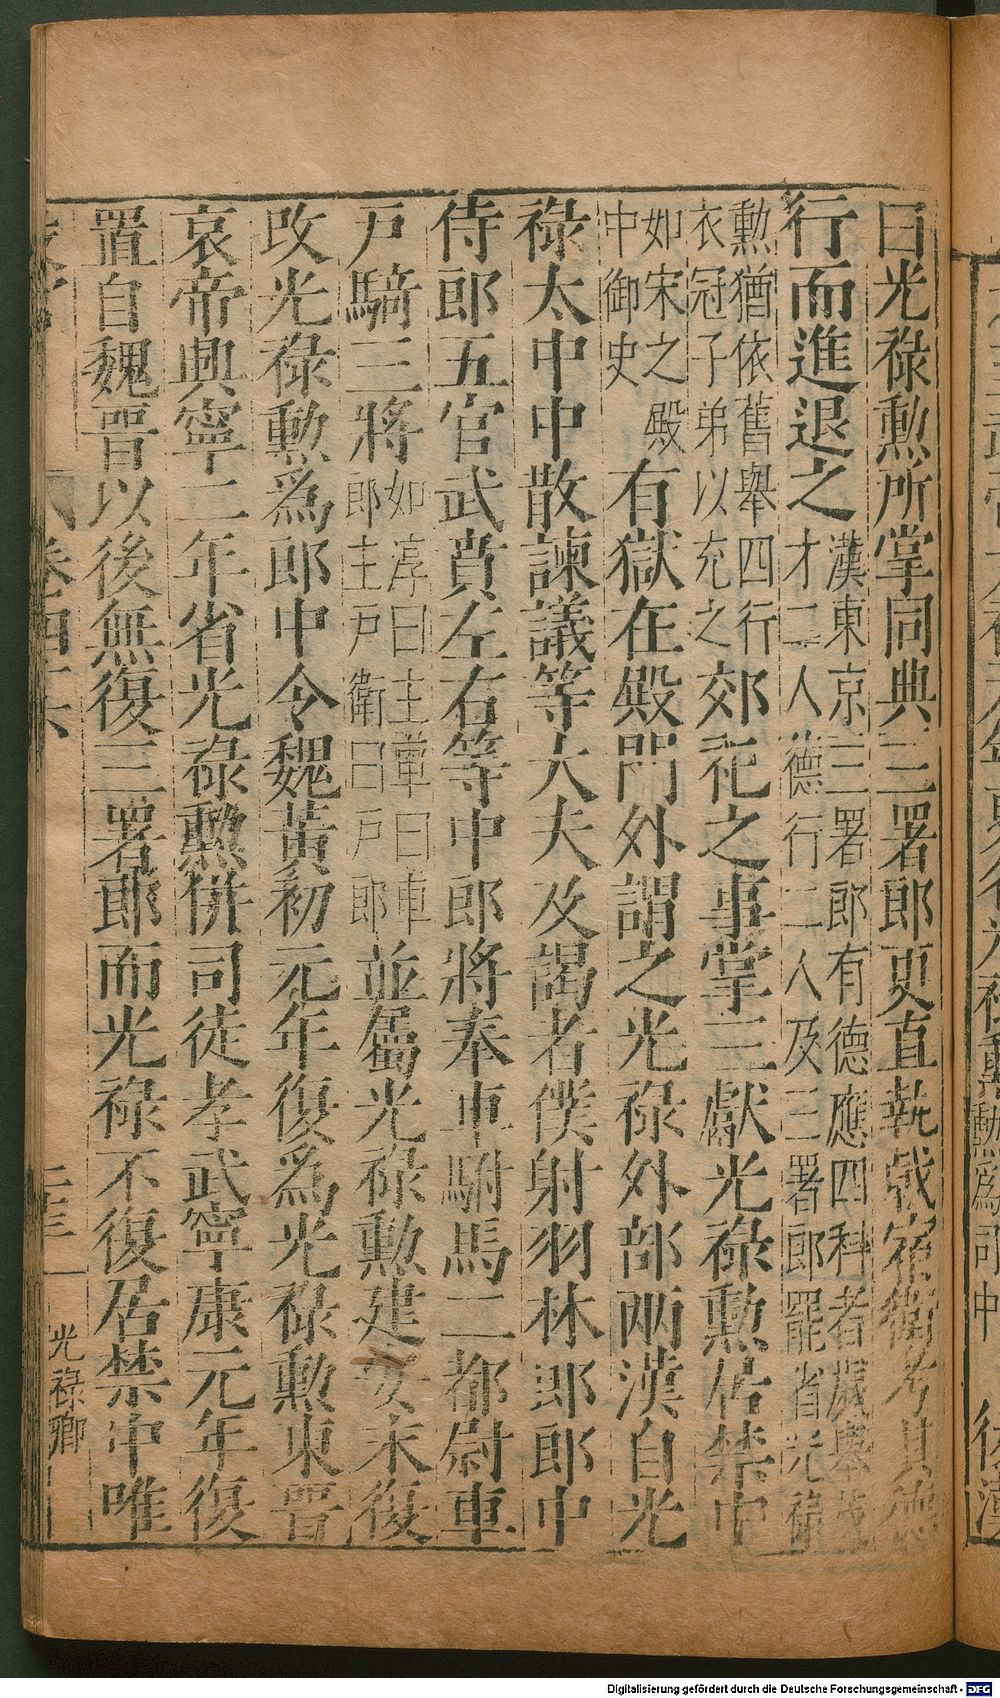 曰光祿勲所掌同典三署郎更直執戟宿衛考其德
行而進退之漢東京三署郎有德應四科者歲舉茂
才二人德行二人及三署郎罷省光祿
勲猶依舊舉四行
衣冠子弟以充之郊祀之事掌三獻光祿勲居禁中
如宋之殿
中御史有獄在殿門外謂之光祿外部兩漢自光
祿太中中散諫議等大夫及謁者僕射羽林郎郎中
侍郎五官武賁左右等中郎將奉車駙馬二都尉車
戸騎三將如淳曰主車曰車
郎主戸衛曰戸郎並屬光祿勲建安末復
改光祿勲爲郎中令魏黃初元年復爲光祿勲東晉
哀帝興寧二年省光祿勲併司徒孝武寧康元年復
置自魏晉以後無復三署郎而光祿不復居禁中唯
光祿卿
Digitalisierung gefördert durch die Deutsche Forschungsgemeinschaft - DFG